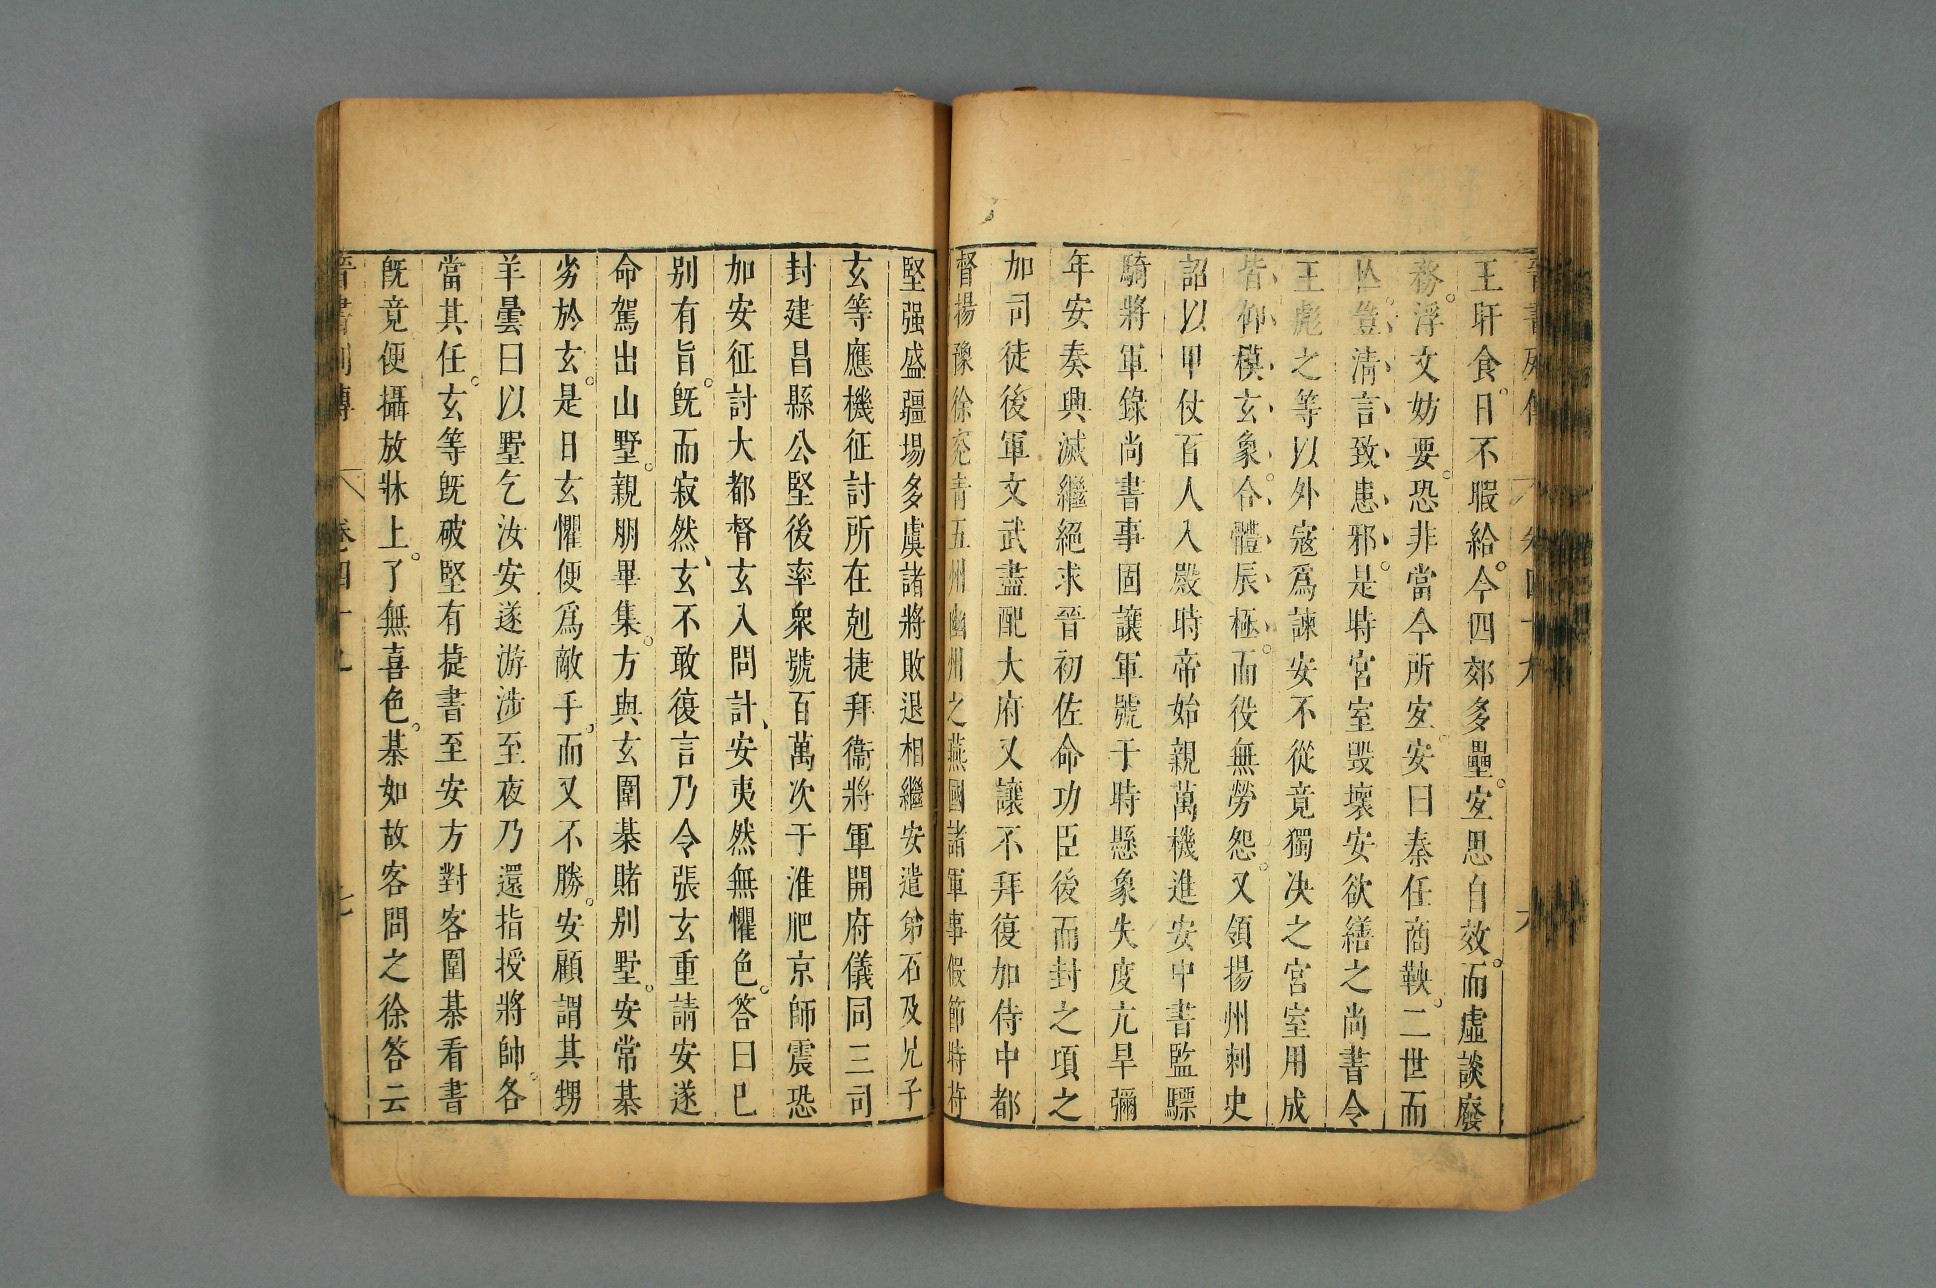 王旰食日不暇給今四郊多壘宜思自效而虛談廢
務浮文妨要恐非當今所宜安曰秦任商鞅二世而
亾豈清言致患邪是時宮室毀壞安欲繕之尚書令
王彪之等以外寇爲諫安不從竟獨决之宮室用成
皆仰模玄象合體辰極而役無勞怨又領揚州刺史
詔以甲仗百人入殿時帝始親萬機進安中書監驃
騎將軍錄尚書事固讓軍號于時懸象失度亢旱彌
年安奏興滅繼絕求晉初佐命功臣後而封之項之
加司徒後軍文武盡配大府又讓不拜復加侍中都
督揚豫徐兗青五州幽州之燕國諸軍事假節時苻
堅强盛疆場多虞諸將敗退相繼安遣弟石及兄子
玄等應機征討所在剋捷拜衞將軍開府儀同三司
封建昌縣公堅後率衆號百萬次于淮肥京師震恐
加安征討大都督玄入問計安夷然無懼色答曰已
别有旨旣而寂然玄不敢復言乃令張玄重請安遂
命駕出山墅親朋畢集方與玄圍棊賭别墅安常棊
劣於玄是日玄懼便爲敵手而又不勝安顧謂其甥
羊曇曰以墅乞汝安遂游涉至夜乃還指授將帥各
當其任玄等旣破堅有㨗書至安方對客圍棊看書
旣竟便攝放牀上了無喜色棊如故客問之徐答云
晉書列傳 卷四十九 七